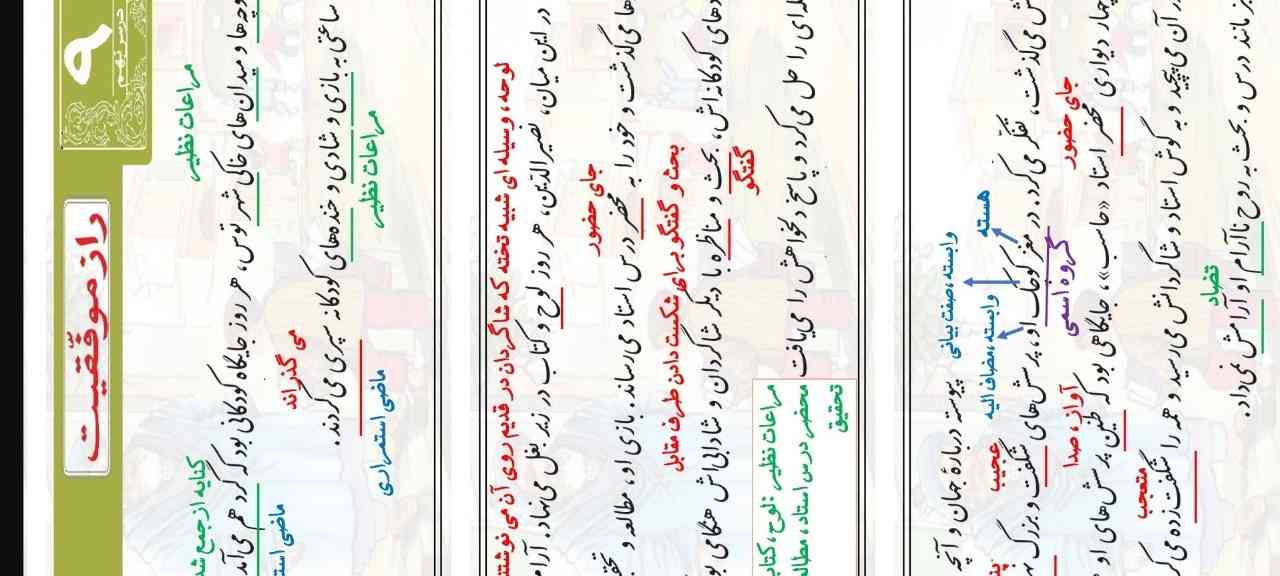 ۹
درس نهم
راز موفّقیت
مراعات نظیر
کنایه از جمع شد
و میدان‌های خاکی شهر توس، هر روز جایگاه کودکانی بود که گرد هم می‌آمد
می گذراند
ساعتی به بازی و شادی و خنده‌های کودکانه سپری می‌کردند.
مراعات نظیر
ماضی استمراری
لوحه، وسیله ای شبیه تخته که شاگردان در قدیم روی آن می نوشتند
در این میان، نصیرالدین، هر روز لوح و کتاب در زیر بغل می‌نهاد. آرام
جای حضور
می‌گذشت و خود را به محضر درس استاد می‌رساند. بازی او، مطالعه و
بحث و گفتگو برای شکست دادن طرف مقابل
کودکانه‌اش، بحث و مناظره با دیگر شاگردان و شادابی‌اش هنگامی
گفتگو
را حل می‌کرد و پاسخ دلخواهش را می‌یافت
مراعات نظیر: لوح، کتاب
محضر درس استاد،
تحقیق
می‌گذشت، تفکّر می‌کرد. پیوسته دربارهٔ جهان و آنچه
هسته
وابسته، صفت بیانی
وابسته، مضاف الیه
عجیب
در مغز کوچک او، پرسش‌های شگفت و بزرگ
گروه اسمی
جای حضور
آواز، صدا
چهار دیواری محضر استاد «حاسب»، جایگاهی بود که طنین پرسش‌های او
متعجب
در آن می‌پیچید و به گوش استاد و شاگردانش می‌رسید و همه را شگفت‌زده
تضاد
درس و بحث به روح ناآرام او آرامش نمی‌داد.